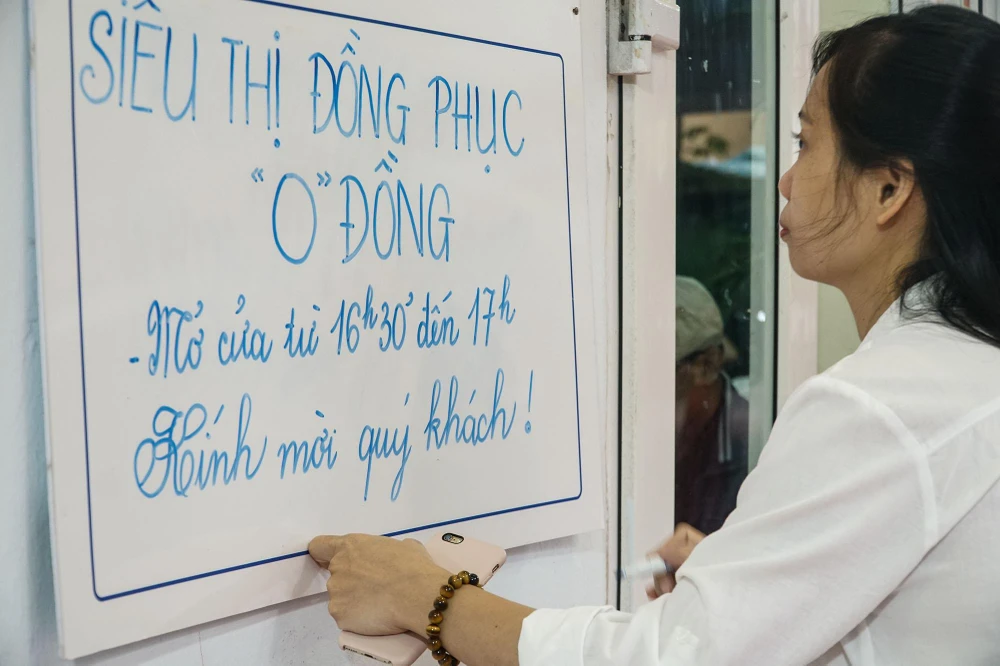 SIÊU THỊ ĐỒNG PHỤC
"0" ĐỒNG
- Mở cửa từ 16h30' đến 17h
Kính mời quý khách!